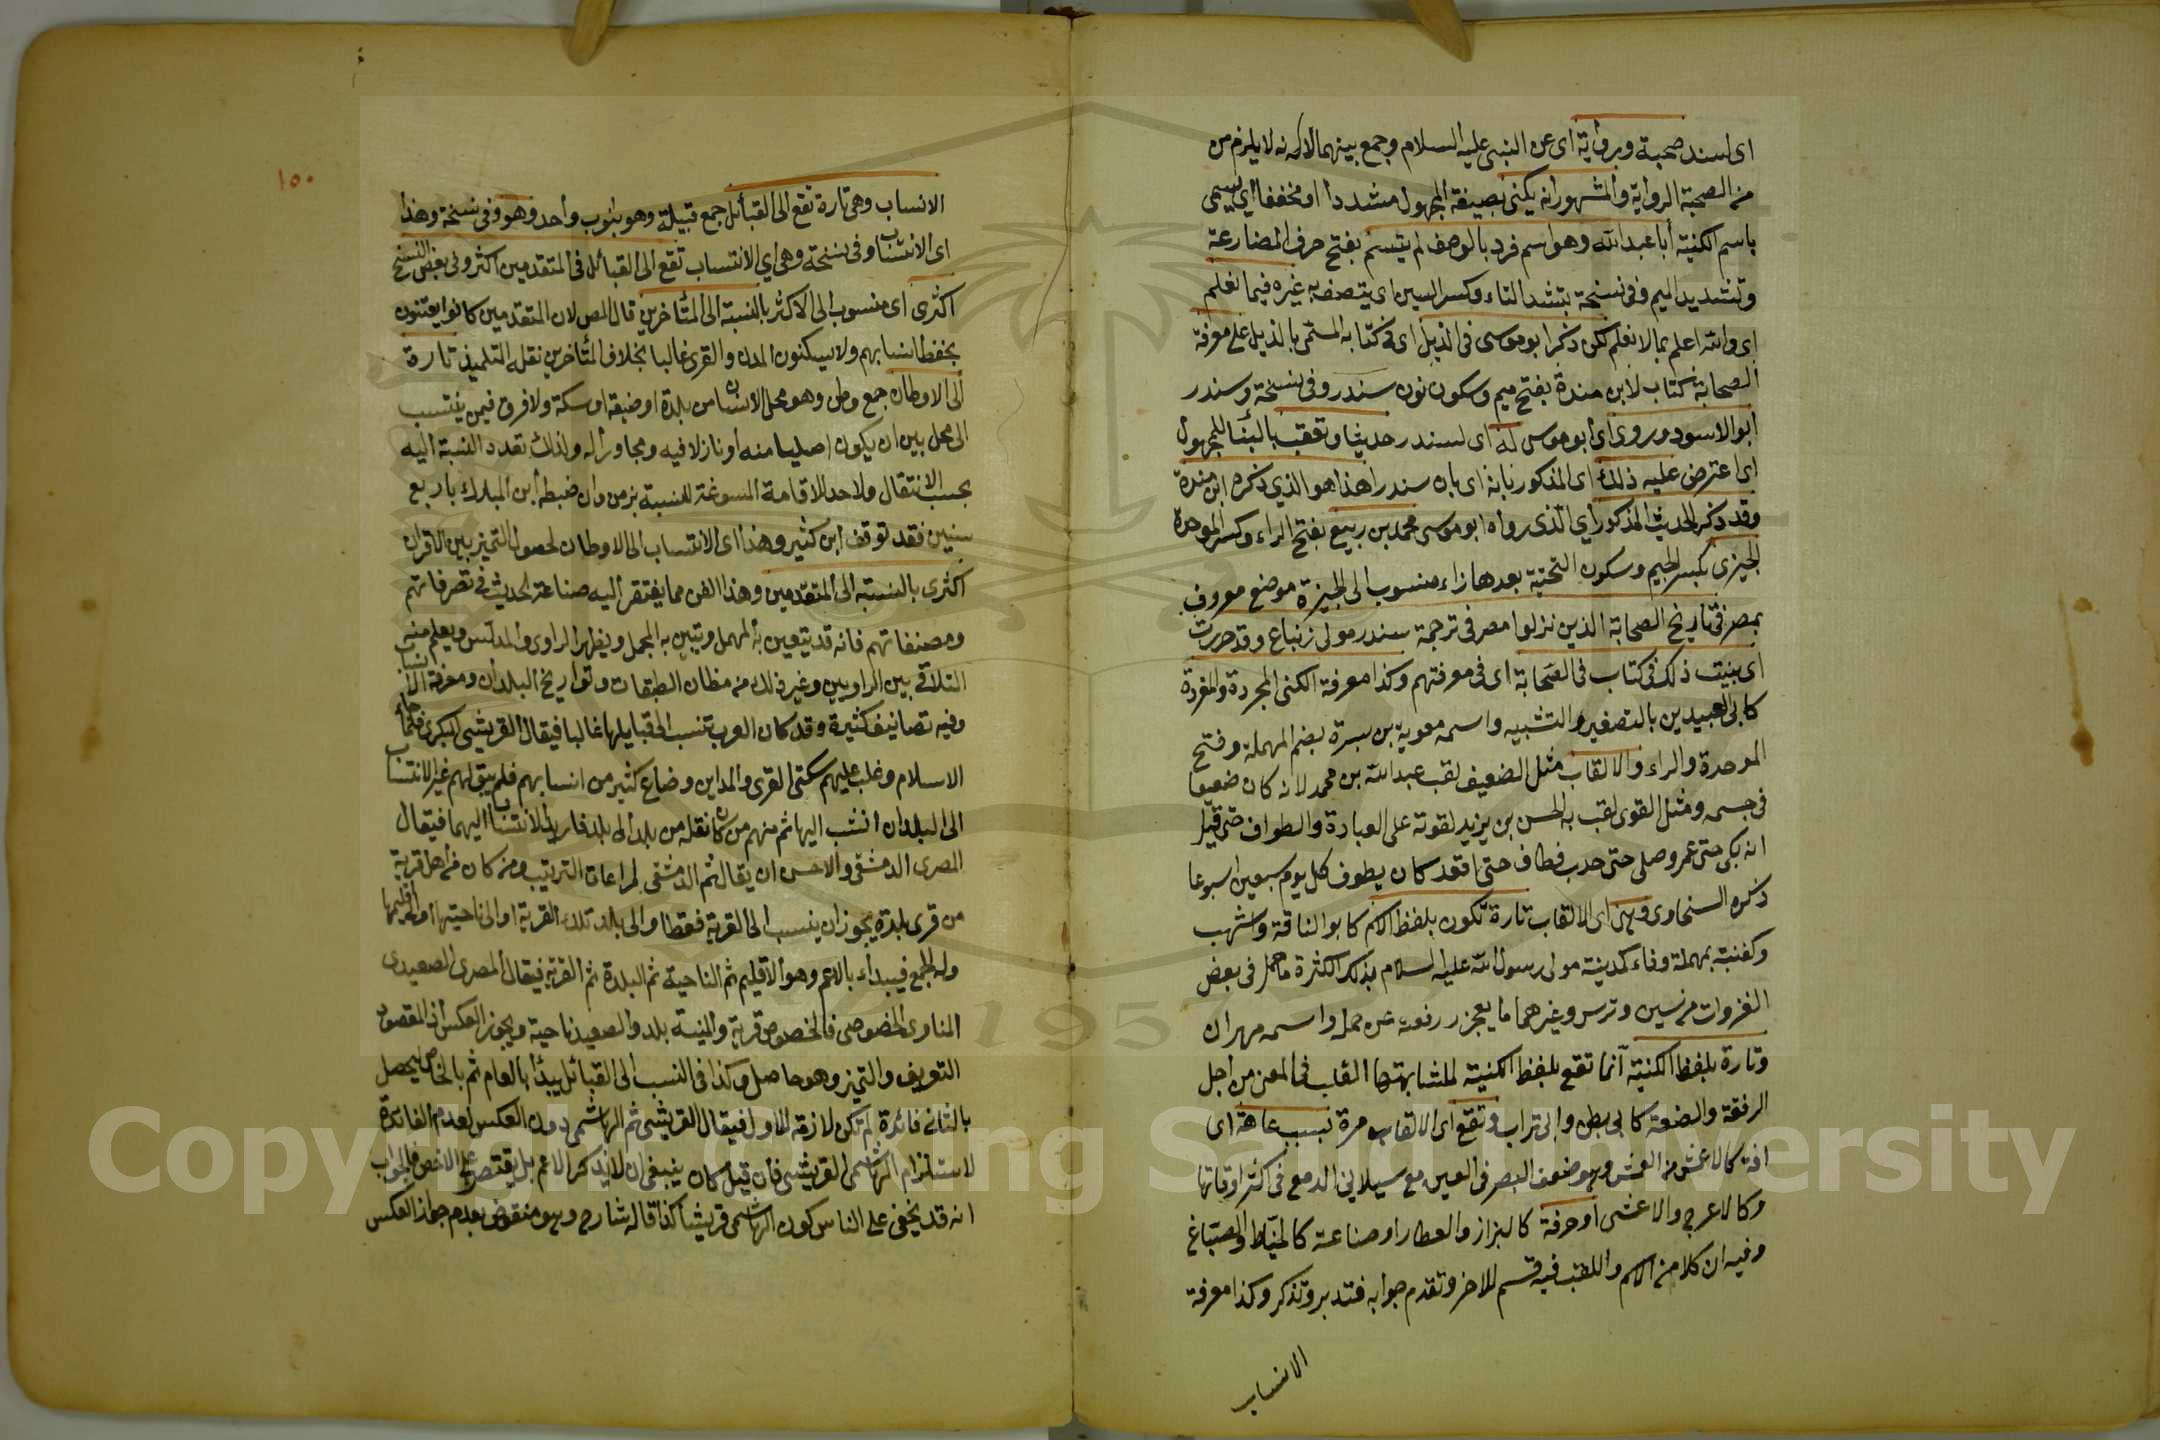 اى لسندر صحبة ورواية اى عن النبى عليه السلام وجمع بينهما لانه لا يلزم من
من الصحبة الرواية والمشهور انه يكنى بصيغة المجهول مشددا او مخففا اى يسمى
باسم الكنية أبا عبد الله وهو اسم فرد بالوصف لم يتسم بفتح حرف المضارعة
وتشديد الميم وفى نسخة بتشد التاء وكسر السين اى يتصف به غيره فيما نعلم
اى والله اعلم بما لا نعلم لكن ذكر ابو موسى فى الذيل اى فى كتابه المسمى بالذيل على معرفة
الصحابة كتاب لابن مندة بفتح ميم وسكون نون سندر وفى نسخة وسندر
ابو الاسود وروى اى أبو موسى له اى لسندر حديثا وتعقب بالبناء للمجهول
اى اعترض عليه ذلك اى المذكور بانه اى بان سندرا هذا هو الذي ذكره ابن مندة
وقد ذكر الحديث المذكور أي الذى رواه ابو موسى محمد بن ربيع بفتح الراء وكسر الموحدة
الجيزى بكسر الجيم وسكون التحتية بعدها زاء منسوب الى الجيزة موضع معروف
بمصر فى تاريخ الصحابة الذين نزلوا مصر فى ترجمة سندر مولى زنباع وقد حررت
اى بينت ذلك فى كتاب فى الصحابة اى فى معرفتهم وكذا معرفة الكنى المجردة والمفردة
كابى العبيدين بالتصغير والتثنيه واسمه معوية بن سبرة بضم المهملة وفتح
الموحدة والراء والالقاب مثل الضعيف لقب عبد الله بن محمد لانه كان ضعيفا
فى جسمه ومثل القوى لقب به الحسن بن يزيد لقوته على العبادة والطواف حتى قيل
انه بكى حتى عمى وصلى حتى حدب فطاف حتى اقعد كان يطوف كل يوم سبعين اسبوعا
ذكره السخاوى وهى اى الالقاب تارة تكون بلفظ الاسم كابو الناقة واشهب
وكفنية بمهملة وفاء كمدينة مولى رسول الله عليه السلام بذلك لكثرة ما حمل فى بعض
الغزوات من سيف وترس وغيرهما ما يعجز رفعته عن حمله واسمه مهران
وتارة بلفظ الكنية انما تقع بلفظ الكنية لمشابهتها اللقب فى المعنى من اجل
الرفعة والضعة كابى بطن وابى تراب وتقع اى الالقاب مرة بسبب عاهة اى
افة كالاعمش من العمش وهو ضعف البصر فى العين مع سيلانى الدمع فى اكثر اوقاتها
وكالاعرج والاعشى او حرفة كالبزاز والعطار او صناعة كالخياط والصباغ
وفيه ان كلا من الاسم واللقب فيه قسم للاخر وتقدم جوابه فتدبر وتذكر وكذا معرفة
الانساب
١٥٠
الانساب وهى تارة تقع الى القبائل جمع قبيلة وهو بنوب واحد وهو وفى نسخة وهذا
اى الانتساب وفى نسخة وهى اي الانتساب تقع الى القبائل فى المتقدمين اكثر وفى بعض النسخ
اكثرى اى منسوب الى الاكثر بالنسبة الى المتأخرين قال المص لان المتقدمين كانوا يعتنون
بحفظ انسابهم ولا يسكنون المدن والقرى غالبا بخلاف المتأخرين نقله التلميذ تارة
الى الاوطان جمع وطن وهو محل الانسان من بلدة او ضيعة او سكة ولا فرق فيمن ينتسب
الى محل بين ان يكون اصليا منه أو نازلا فيه ومجاورا له ولذلك تعدد النسبة اليه
بحسب الانتقال ولا حد للاقامة المسوغة للنسبة بزمن وان ضبطه ابن المبارك باربع
سنين فقد توقف ابن كثير وهذا اى الانتساب الى الاوطان لحصول التميز بين الاقران
اكثرى بالنسبة الى المتقدمين وهذا الفن مما يفتقر اليه صناعة الحديث فى تصرفاتهم
ومصنفاتهم فانه قد يتعين به المهمل ويتبين به المجمل ويظهر الراوى والمدلس ويعلم منه
التلاقى بين الراويين وغير ذلك من مظان الطبقات وتواريخ البلدان ومعرفة الانساب
وفيه تصانيف كثيرة وقد كان العرب تنسب الى قبايلها غالبا فيقال القريشى البكرى فلما جاء
الاسلام وغلب عليهم سكنى القرى والمداين وضاع كثير من انسابهم فلم يبق لهم غير الانتساب
الى البلدان انتسب اليها ثم منهم من كان نقله من بلد الى بلد فاراد الانتساب اليهما فيقال
المصرى الدمشقى والاحسن ان يقال ثم الدمشقى لمراعات الترتيب ومن كان من اهل قرية
من قرى بلدة يجوز ان ينسب الى القرية فقط او الى بلد تلك القرية او الى ناحيتها او اقليمها
وله الجمع فيبداء بالاعم وهو الاقليم ثم الناحية ثم البلدة ثم القرية فيقال المصرى الصعيدى
المناوى الخضوصى فالخصوص قرية والمنية بلد والصعيد ناحية ويجوز العكس اذ المقصود
التعريف والتميز وهو حاصل وكذا فى النسب الى القبائل يبدأ بالعام ثم بالخاص ليحصل
بالثانى فائدة لم تكن لازمة للاول فيقال القريشى ثم الهاشمى دون العكس لعدم الفائدة
لاستلزام الهاشمى القريشى فان قيل كان ينبغى ان لا يذكر الاعم بل يقتصر على الاخص فالجواب
انه قد يخفى على الناس كون الهاشمى قريشيا كذا قاله شارح وهو منقوض بعدم جواز العكس
Copyright © King Saud University
195